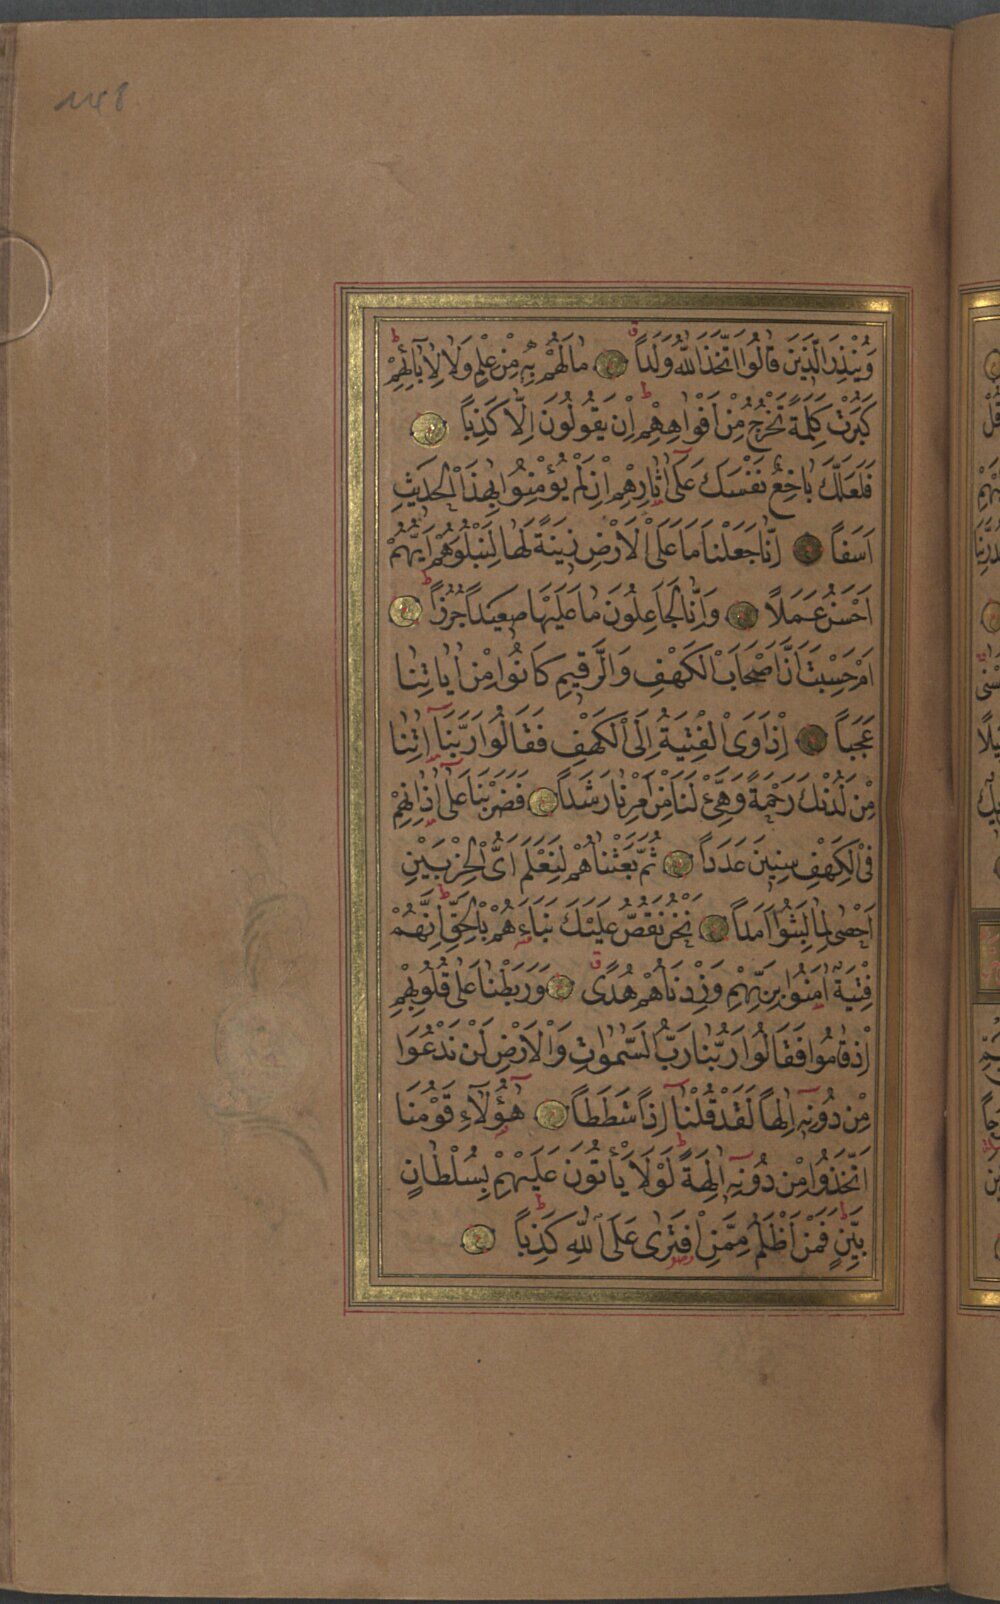 148
وَيُنْذِرَ الَّذِينَ قَالُوا اتَّخَذَ اللّٰهُ وَلَداً مَا لَهُمْ بِهِ مِنْ عِلْمٍ وَلَا لِاٰبَائِهِمْ
كَبُرَتْ كَلِمَةً تَخْرُجُ مِنْ اَفْوَاهِهِمْ اِنْ يَقُولُونَ اِلَّا كَذِباً
فَلَعَلَّكَ بَاخِعٌ نَفْسَكَ عَلٰٓى اٰثَارِهِمْ اِنْ لَمْ يُؤْمِنُوا بِهٰذَا الْحَدِيثِ
اَسَفاً اِنَّا جَعَلْنَا مَا عَلَى الْاَرْضِ زِينَةً لَهَا لِنَبْلُوَهُمْ اَيُّهُمْ
اَحْسَنُ عَمَلاً وَاِنَّا لَجَاعِلُونَ مَا عَلَيْهَا صَعِيداً جُرُزاً
اَمْ حَسِبْتَ اَنَّ اَصْحَابَ الْكَهْفِ وَالرَّقِيمِ كَانُوا مِنْ اٰيَاتِنَا
عَجَباً اِذْ اَوَى الْفِتْيَةُ اِلَى الْكَهْفِ فَقَالُوا رَبَّنَٓا اٰتِنَا
مِنْ لَدُنْكَ رَحْمَةً وَهَيِّئْ لَنَا مِنْ اَمْرِنَا رَشَداً فَضَرَبْنَا عَلٰٓى اٰذَانِهِمْ
فِى الْكَهْفِ سِنِينَ عَدَداً ثُمَّ بَعَثْنَاهُمْ لِنَعْلَمَ اَىُّ الْحِزْبَيْنِ
اَحْصٰى لِمَا لَبِثُٓوا اَمَداً نَحْنُ نَقُصُّ عَلَيْكَ نَبَاَهُمْ بِالْحَقِّ اِنَّهُمْ
فِتْيَةٌ اٰمَنُوا بِرَبِّهِمْ وَزِدْنَاهُمْ هُدًى وَرَبَطْنَا عَلٰى قُلُوبِهِمْ
اِذْ قَامُوا فَقَالُوا رَبُّنَا رَبُّ السَّمٰوَاتِ وَالْاَرْضِ لَنْ نَدْعُوَا
مِنْ دُونِهِٓ اِلٰهاً لَقَدْ قُلْنَٓا اِذاً شَطَطاً هٰٓؤُلَٓاءِ قَوْمُنَا
اتَّخَذُوا مِنْ دُونِهِٓ اٰلِهَةً لَوْلَا يَأْتُونَ عَلَيْهِمْ بِسُلْطَانٍ
بَيِّنٍ فَمَنْ اَظْلَمُ مِمَّنِ افْتَرٰى عَلَى اللّٰهِ كَذِباً